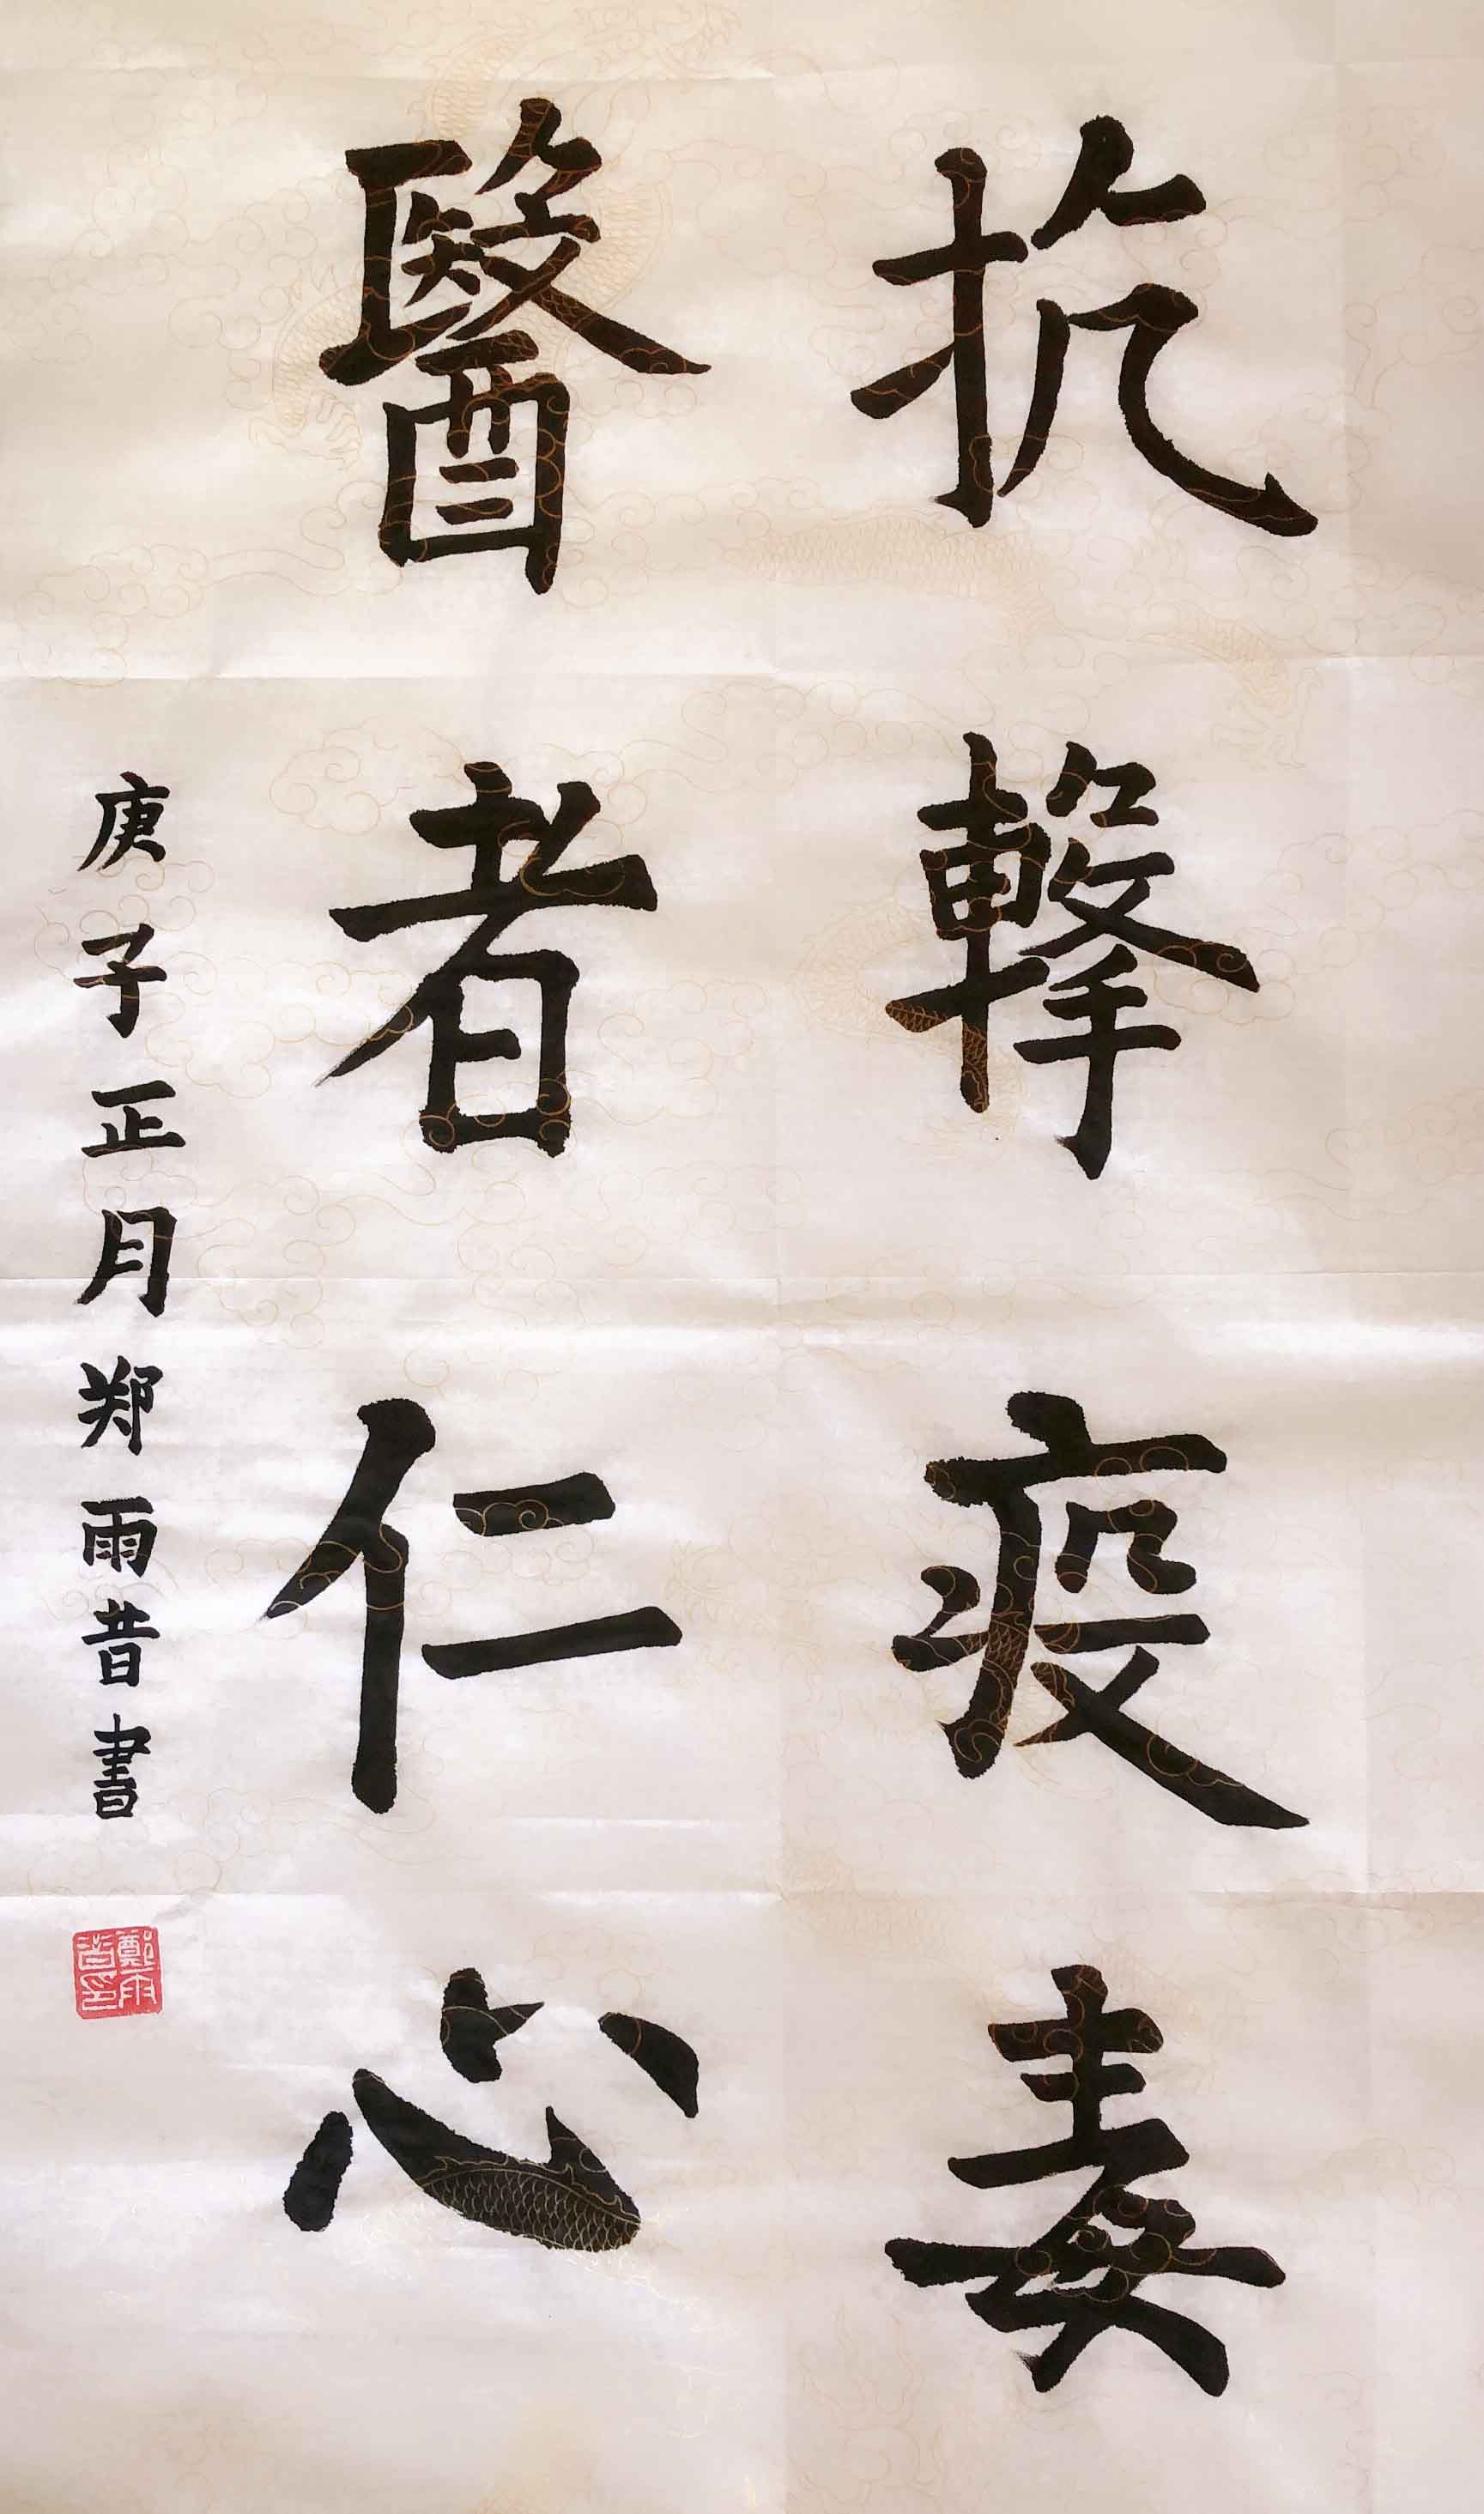 抗擊疫毒
醫者仁心
庚子正月郑雨昔書
鄭雨昔印